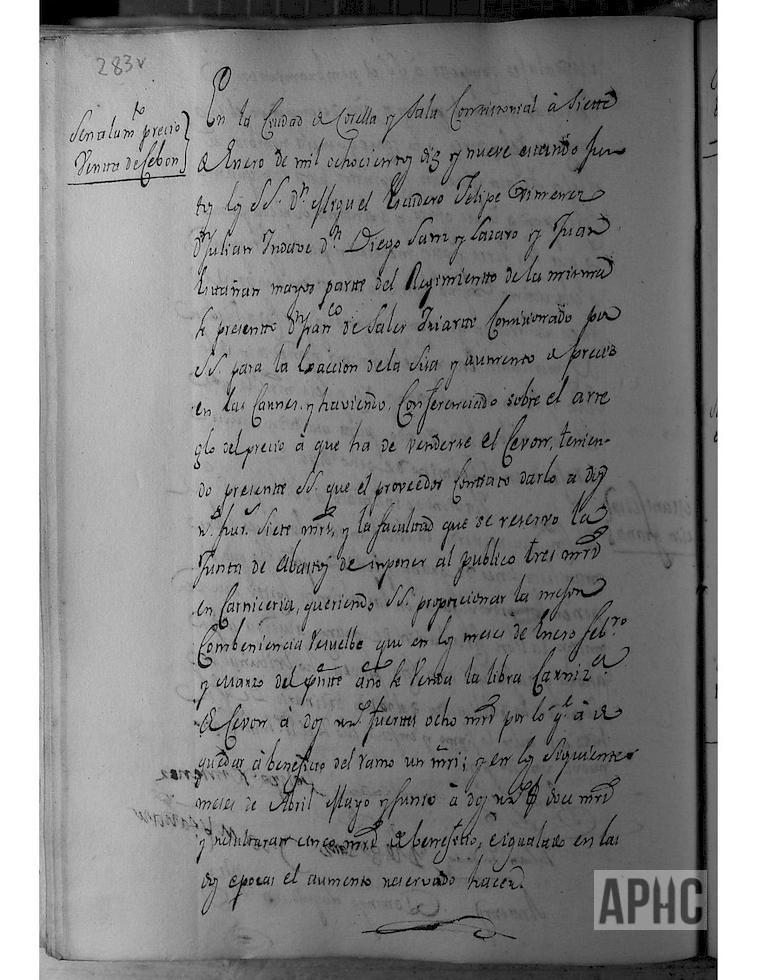 283v
Senalam.to precio
Venta de Cebon
En la Ciudad de Corella y Sala Consistorial à Siette
de Enero de mil ochocientos diez y nueve estando jun
tos los SS. D.n Miguel Escudero Felipe Ximenez
D.n Julian Indave D.n Diego Sanz y Lazaro y Juan
mayor parte del Regimientto de la misma
se presentto D.n Fran.co de Sales Iriartte Comisionado por
SS. para la de la Sisa y aumento de precio
en las Carnes, y haviendo Conferenciado sobre el arre
glo del precio à que ha de venderse el Cevon, tenien-
do presentte SS. que el proveedor Contrato darlo a dos
r.s fuer.s Siete mrs, y la facultad que se reservo la
Junta de Abastos de inponer al publico tres mrs
en Carniceria, queriendo SS. proporcionar la mejor
Combeniencia Resuelbe que en los meses de Enero feb.ro
y Marzo del pnte año se Venda la libra Carniz.a
de Cevon à dos r.s fuertes ocho mrs por lo q.e à de
quedar à beneficio del ramo un mri; y en los Siguientes
meses de Abril Mayo y Junio à dos r.s doce mrs
y resultaran cinco mrs de beneficio, è igualado en las
dos epocas el aumento reservado hacen
APHC